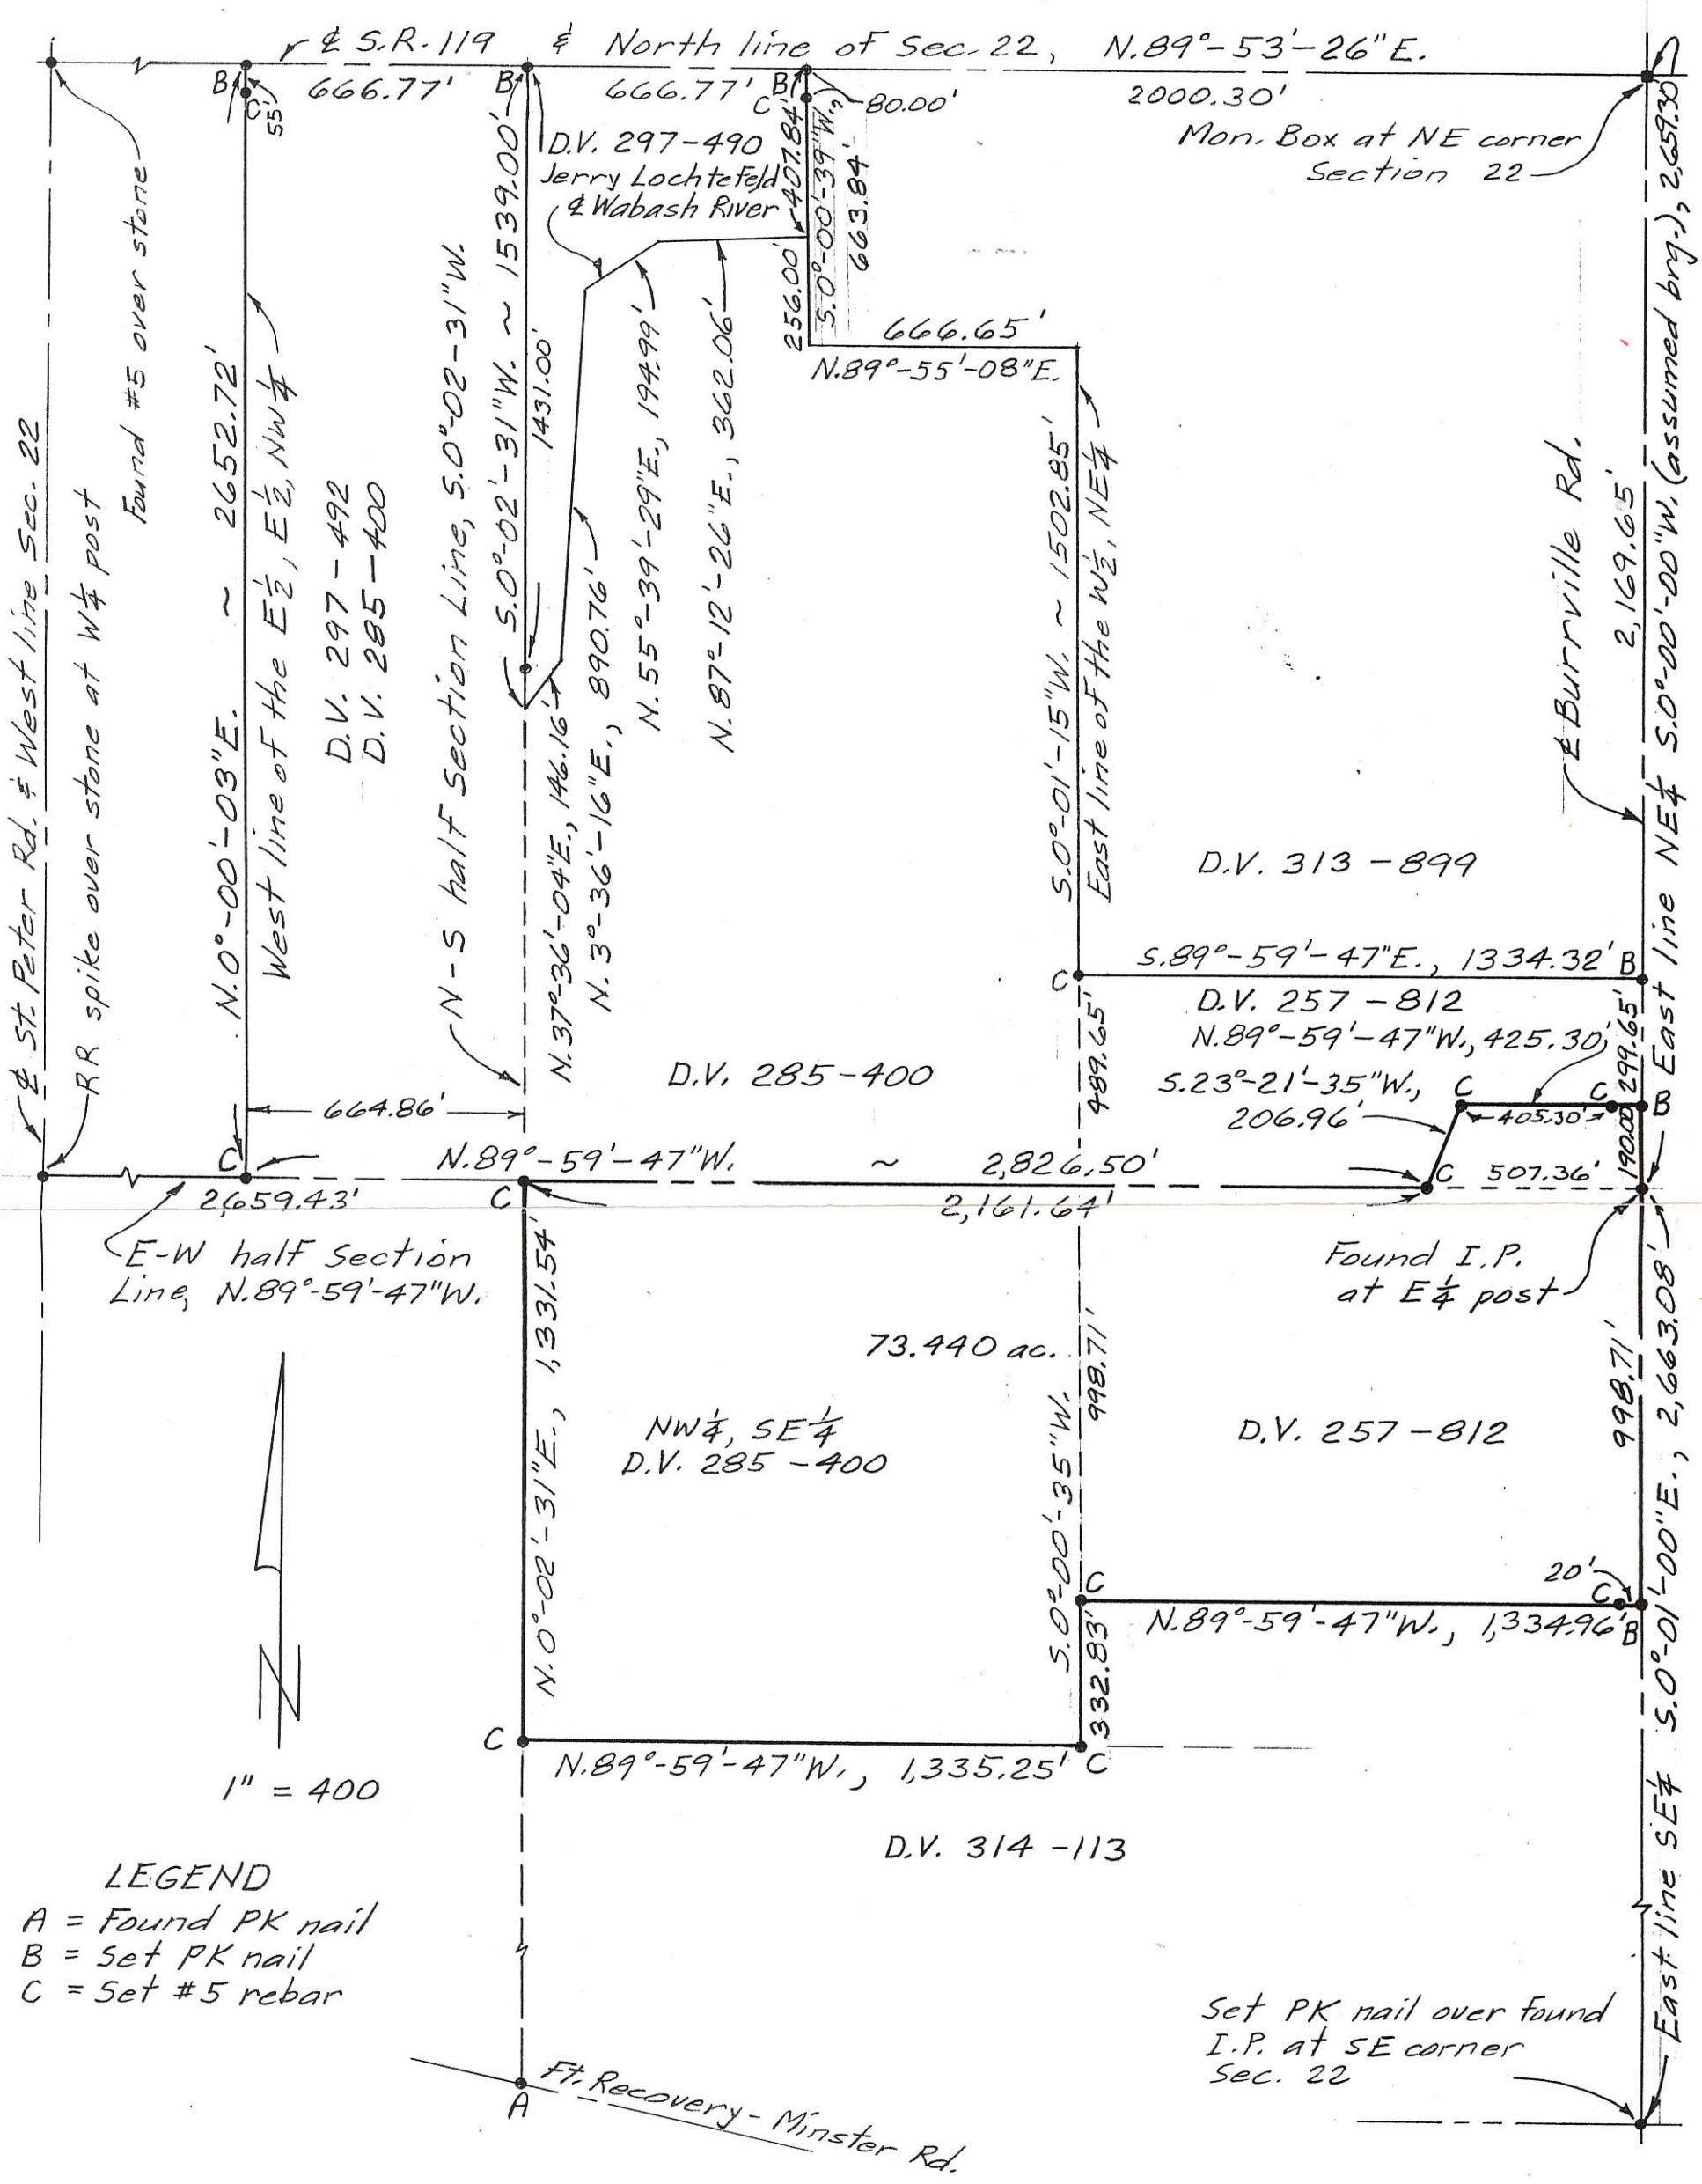 ℄ S.R. 119 & North line of Sec. 22, N.89°-53'-26"E.
B
666.77'
B
666.77'
B
80.00'
2000.30'
C
55'
C
Mon. Box at NE corner
Section 22
D.V. 297-490
Jerry Lochtefeld
℄ Wabash River
407.84'
S.0°-00'-39"W.,
663.84'
256.00'
666.65'
N.89°-55'-08"E.
Found #5 over stone
℄ St. Peter Rd. & West line Sec. 22
RR spike over stone at W¼ post
N.0°-00'-03"E. ~ 2652.72'
West line of the E½, E½, NW¼
D.V. 297-492
D.V. 285-400
N-S half Section Line, S.0°-02-31"W.
S.0°-02'-31"W. ~ 1539.00'
1431.00'
N.37°-36'-04"E., 146.16'
N.3°-36'-16"E., 890.76'
N.55°-39'-29"E., 194.99'
N.87°-12'-26"E., 362.06'
S.0°-01'-15"W. ~ 1502.85'
East line of the W½, NE¼
℄ Burrville Rd.
2,169.65'
East line NE¼ S.0°-00'-00"W. (assumed brg.), 2,659.30'
D.V. 313-899
S.89°-59'-47"E., 1334.32'
B
C
D.V. 257-812
N.89°-59'-47"W., 425.30'
489.65'
299.65'
S.23°-21'-35"W.,
206.96'
C
C
B
405.30'
190.00'
D.V. 285-400
664.86'
C
N.89°-59'-47"W. ~ 2,826.50'
C
507.36'
2,659.43'
C
2,161.64'
E-W half Section
Line, N.89°-59'-47"W.
Found I.P.
at E¼ post
N.0°-02'-31"E., 1,331.54'
73.440 ac.
998.71'
998.71'
NW¼, SE¼
D.V. 285-400
S.0°-00'-35"W.
D.V. 257-812
East line SE¼ S.0°-01'-00"E., 2,663.08'
20'
C
C
N.89°-59'-47"W., 1,334.96'
B
332.83'
C
N.89°-59'-47"W., 1,335.25'
C
N
1" = 400
D.V. 314-113
LEGEND
A = Found PK nail
B = Set PK nail
C = Set #5 rebar
Set PK nail over found
I.P. at SE corner
Sec. 22
A
Ft. Recovery-Minster Rd.